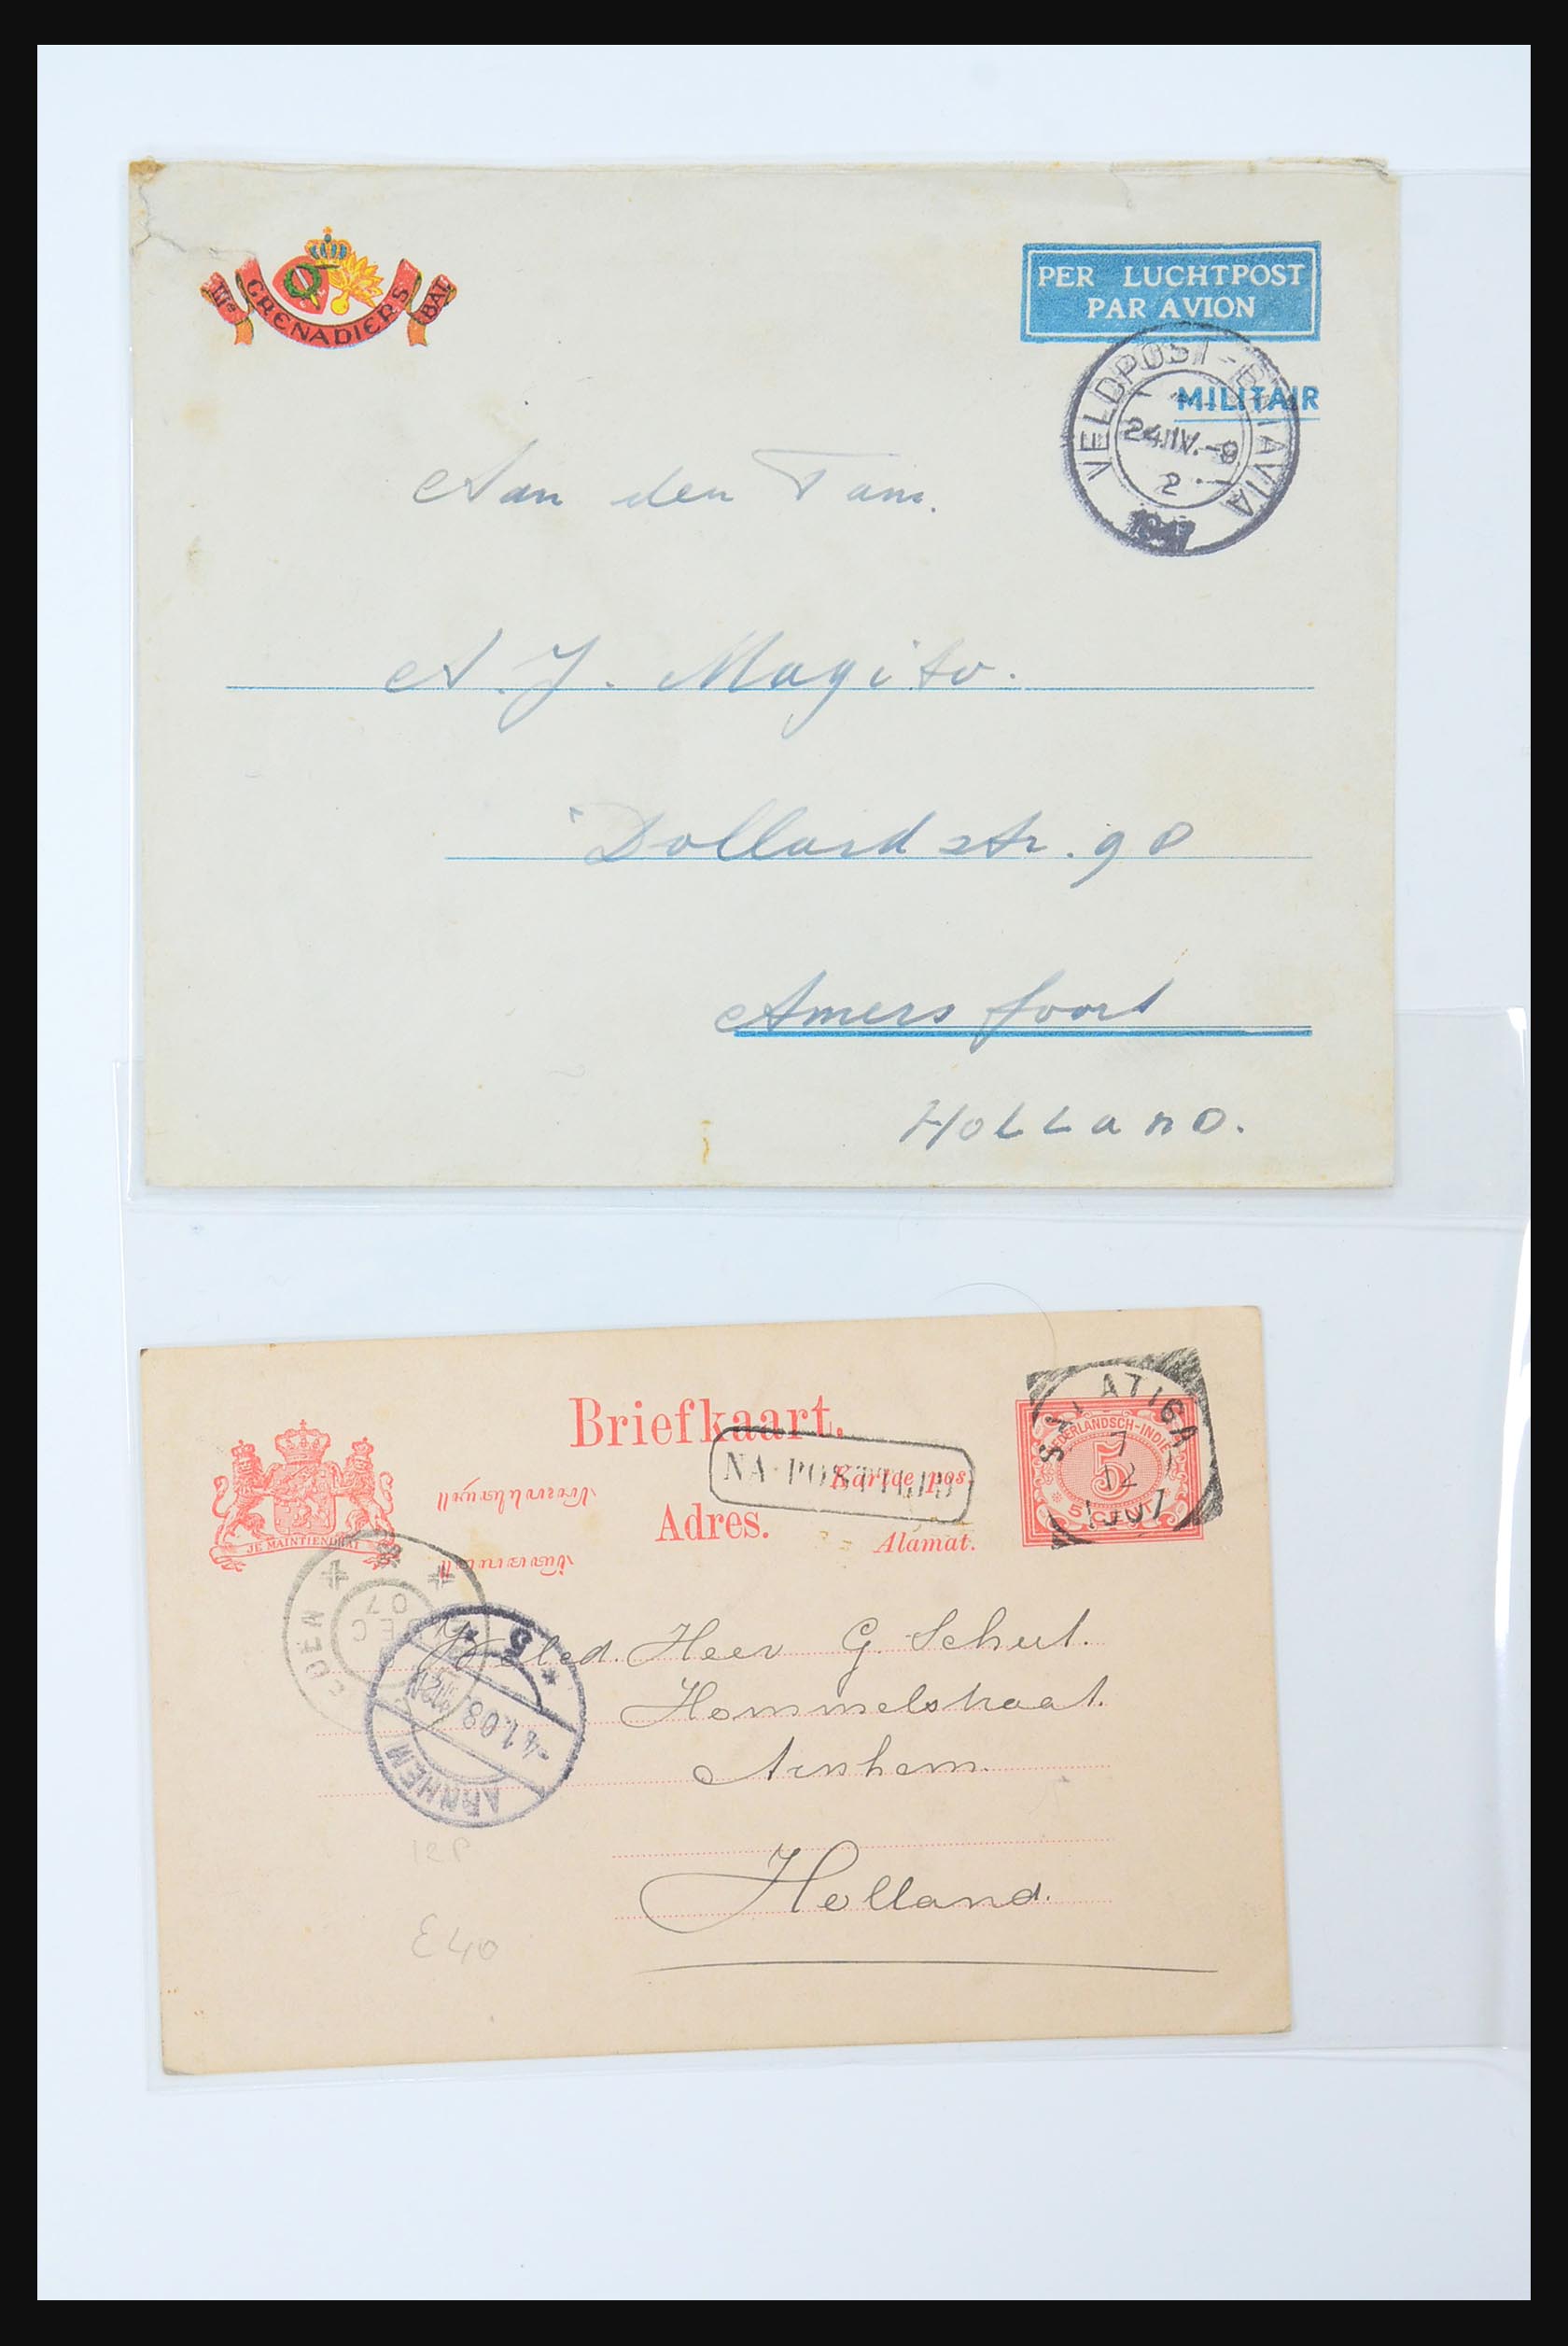 IIIe GRENADIERS BAT
PER LUCHTPOST
PAR AVION
MILITAIR
VELDPOST-BATAVIA
24.IV.-9
2
1947
Aan den Fam.
A. J. Magito.
Dollardstr. 90
Amersfoort
HOLLAND.
Briefkaart.
NA POSTTIJD
Kartoe pos.
Adres.
Alamat.
JE MAINTIENDRAI
SALATIGA
7
12
1907
NEDERLANDSCH-INDIE
5
5 CENT
DEC
07
Weled. Heer G. Schut.
Hommelstraat.
Arnhem.
Holland.
ARNHEM
-4.1.08
5
E 40